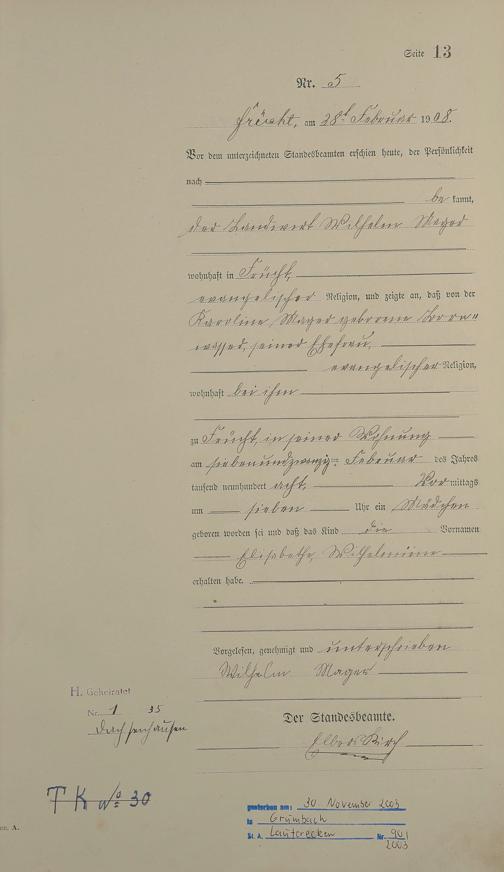 Seite 13
Nr. 5
Frücht, am 28t Februar 1908.
Vor dem unterzeichneten Standesbeamten erschien heute, der Persönlichkeit
nach
be kannt,
der Landwirt Wilhelm Mager
wohnhaft in Frücht,
evangelischer Religion, und zeigte an, daß von der
Karoline Mager geborene Born=
wasser, seiner Ehefrau,
evangelischer Religion,
wohnhaft bei ihm
zu Frücht, in seiner Wohnung
am siebenundzwanzig= Februar des Jahres
tausend neunhundert acht, Vor mittags
um sieben Uhr ein Mädchen
geboren worden sei und daß das Kind die Vornamen
Elisabethe, Wilhelmine
erhalten habe.
Vorgelesen, genehmigt und unterschrieben
Wilhelm Mager
H. Geheiratet
Nr. 1 35
Dachsenhausen
Der Standesbeamte.
T K No 30
gestorben am: 30 November 2003
in Grumbach
St. A. Lauterecken Nr. 90/
2003
en. A.